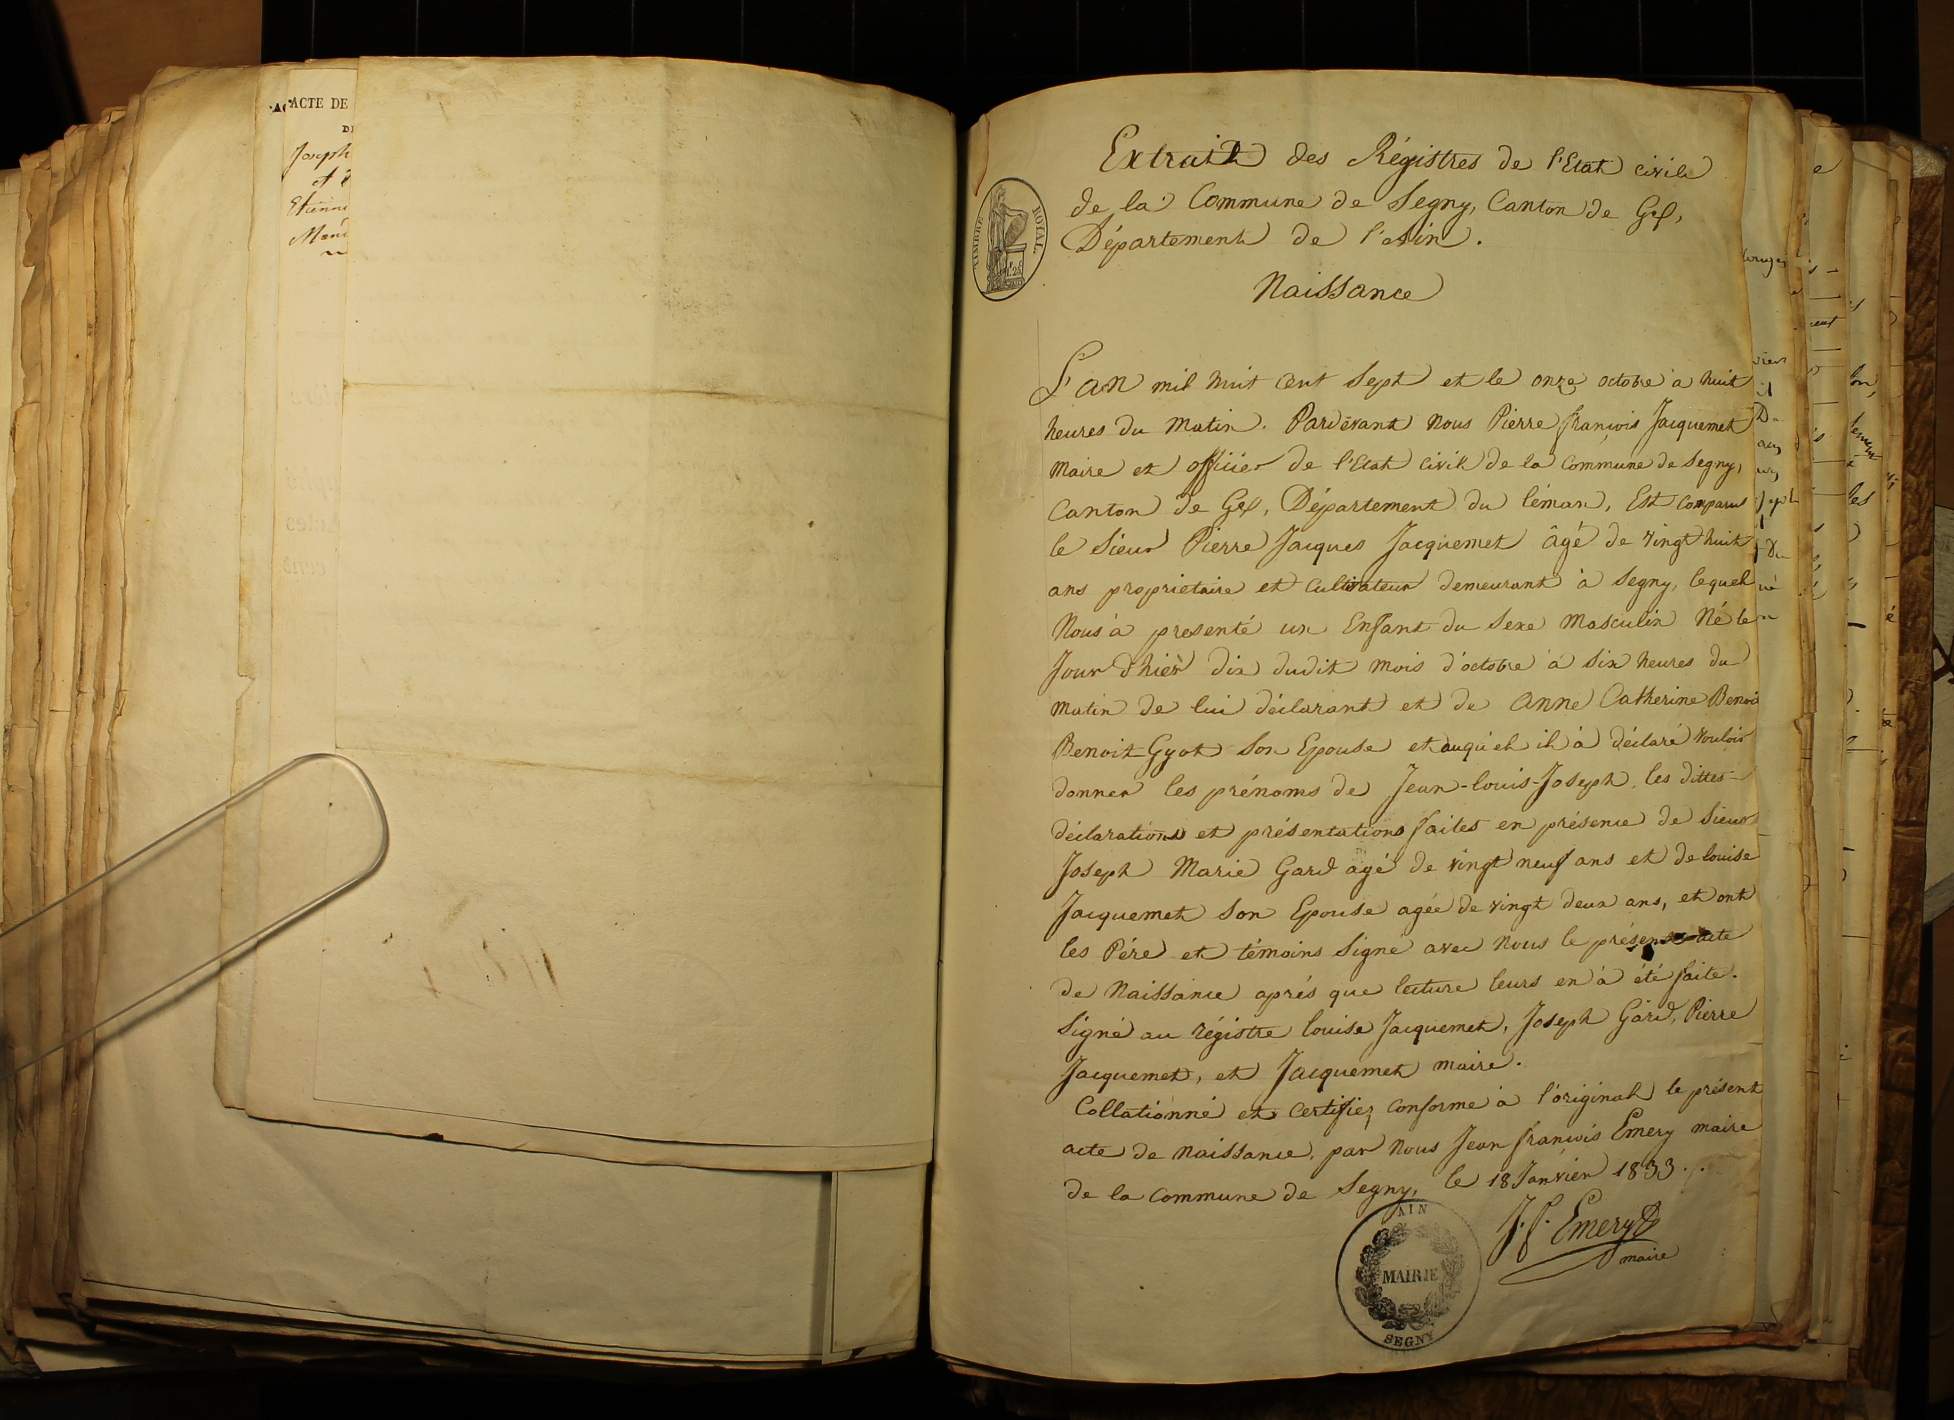 ACTE DE
Joseph
et
Etienne
TIMBRE ROYAL
Extrait des Régistres de l'Etat civile
de la Commune de Segny, Canton de Gex,
Département de l'Ain.
Naissance
L'an mil huit cent Sept et le onze octobre à huit
heures du Matin. Pardevant Nous Pierre françois Jacquemet
Maire et officier de l'Etat civil de la Commune de Segny,
Canton de Gex, Département du léman, Est Comparus
le Sieur Pierre Jacques Jacquemet âgé de vingt huit
ans proprietaire et Cultivateur demeurant à Segny, lequel
Nous à presenté un Enfant du Sexe Masculin Né le
Jour d'hier dix dudit Mois d'octobre à Six heures du
Matin de lui déclarant et de Anne Catherine Benoit
Benoit Gyot Son Epouse et auquel il à déclaré vouloir
donner les prénoms de Jean-louis-Joseph. les dittes
déclarations et présentations faites en présence de Sieur
Joseph Marie Gard agé de vingt neuf ans et de louise
Jacquemet Son Epouse agée de vingt deux ans, et ont
les Pére et témoins Signé avec Nous le présent acte
de Naissance aprés que lecture leurs en à été faite.
Signé au régistre louise Jacquemet, Joseph Gard, Pierre
Jacquemet, et Jacquemet maire.
Collationné et Certifiez Conforme à l'original le présent
acte de Naissance. par Nous Jean françois Emery maire
de la Commune de Segny, le 18 Janvier 1833.
J. f. Emery
maire
AIN
MAIRIE
SEGNY